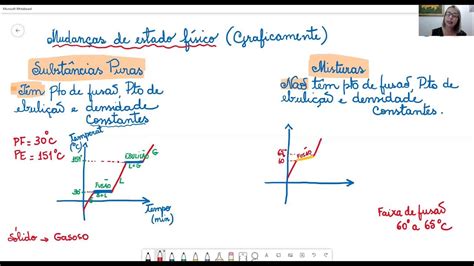 Microsoft Whiteboard
Mudanças de estado físico (Graficamente)
Substâncias Puras
Têm pto de fusão, Pto de
ebulição e densidade
Constantes
PF = 30°C
PE = 151°C
Temperat
(°C)
151
30
S
FUSÃO
S+L
L
EBULIÇÃO
L+G
G
Tempo
(min)
Sólido → Gasoso
Misturas
Não têm pto de fusão, Pto de
ebulição e densidade
Constantes.
65
60
FUSÃO
Faixa de fusão
60 a 65°C